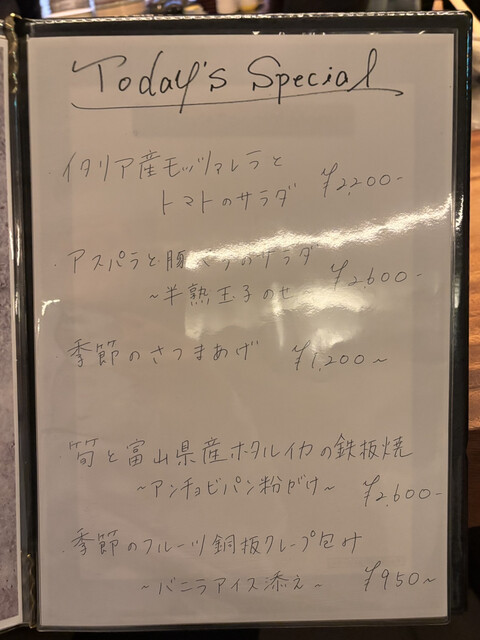 Today's Special
イタリア産モッツァレラと
トマトのサラダ ¥2,200-
・アスパラと豚 のサラダ
~半熟玉子のせ ¥2,600-
・季節のさつまあげ ¥1,200~
・筍と富山県産ホタルイカの鉄板焼
~アンチョビパン粉がけ~ ¥2,600-
・季節のフルーツ銅板クレープ包み
~バニラアイス添え~ ¥950~